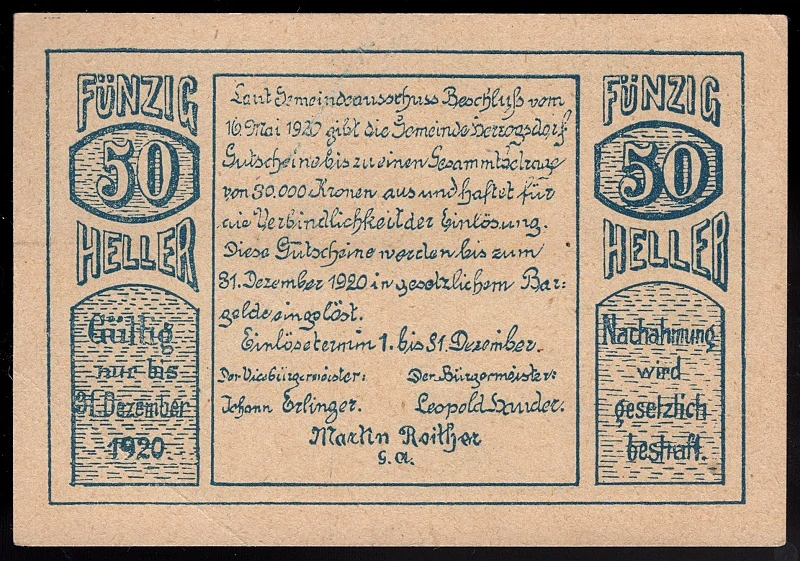 FÜNZIG
50
HELLER
Gültig
nur bis
31. Dezember
1920
Laut Gemeindeausschuss Beschluß vom
16 Mai 1920 gibt die Gemeinde Herzogsdorf
Gutscheine bis zu einen Gesammtbetrage
von 30.000 Kronen aus und haftet für
die Verbindlichkeit der Einlösung.
Diese Gutscheine werden bis zum
31. Dezember 1920 in gesetzlichem Bar=
gelde eingelöst.
Einlösetermin 1. bis 31. Dezember.
Der Vicebürgermeister: Der Bürgermeister:
Johann Erlinger. Leopold
Martin Reither
G. R.
FÜNZIG
50
HELLER
Nachahmung
wird
gesetzlich
bestraft.